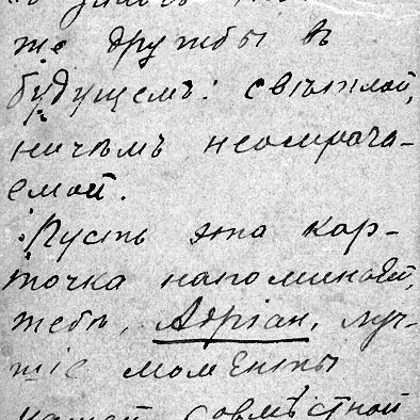 же дружбы въ
будущемъ: свѣтлой,
ничѣмъ неомрача-
емой.
Пусть эта кар-
точка напоминает
тебѣ, Адріан, луч-
шіе моменты
нашей совмѣстной